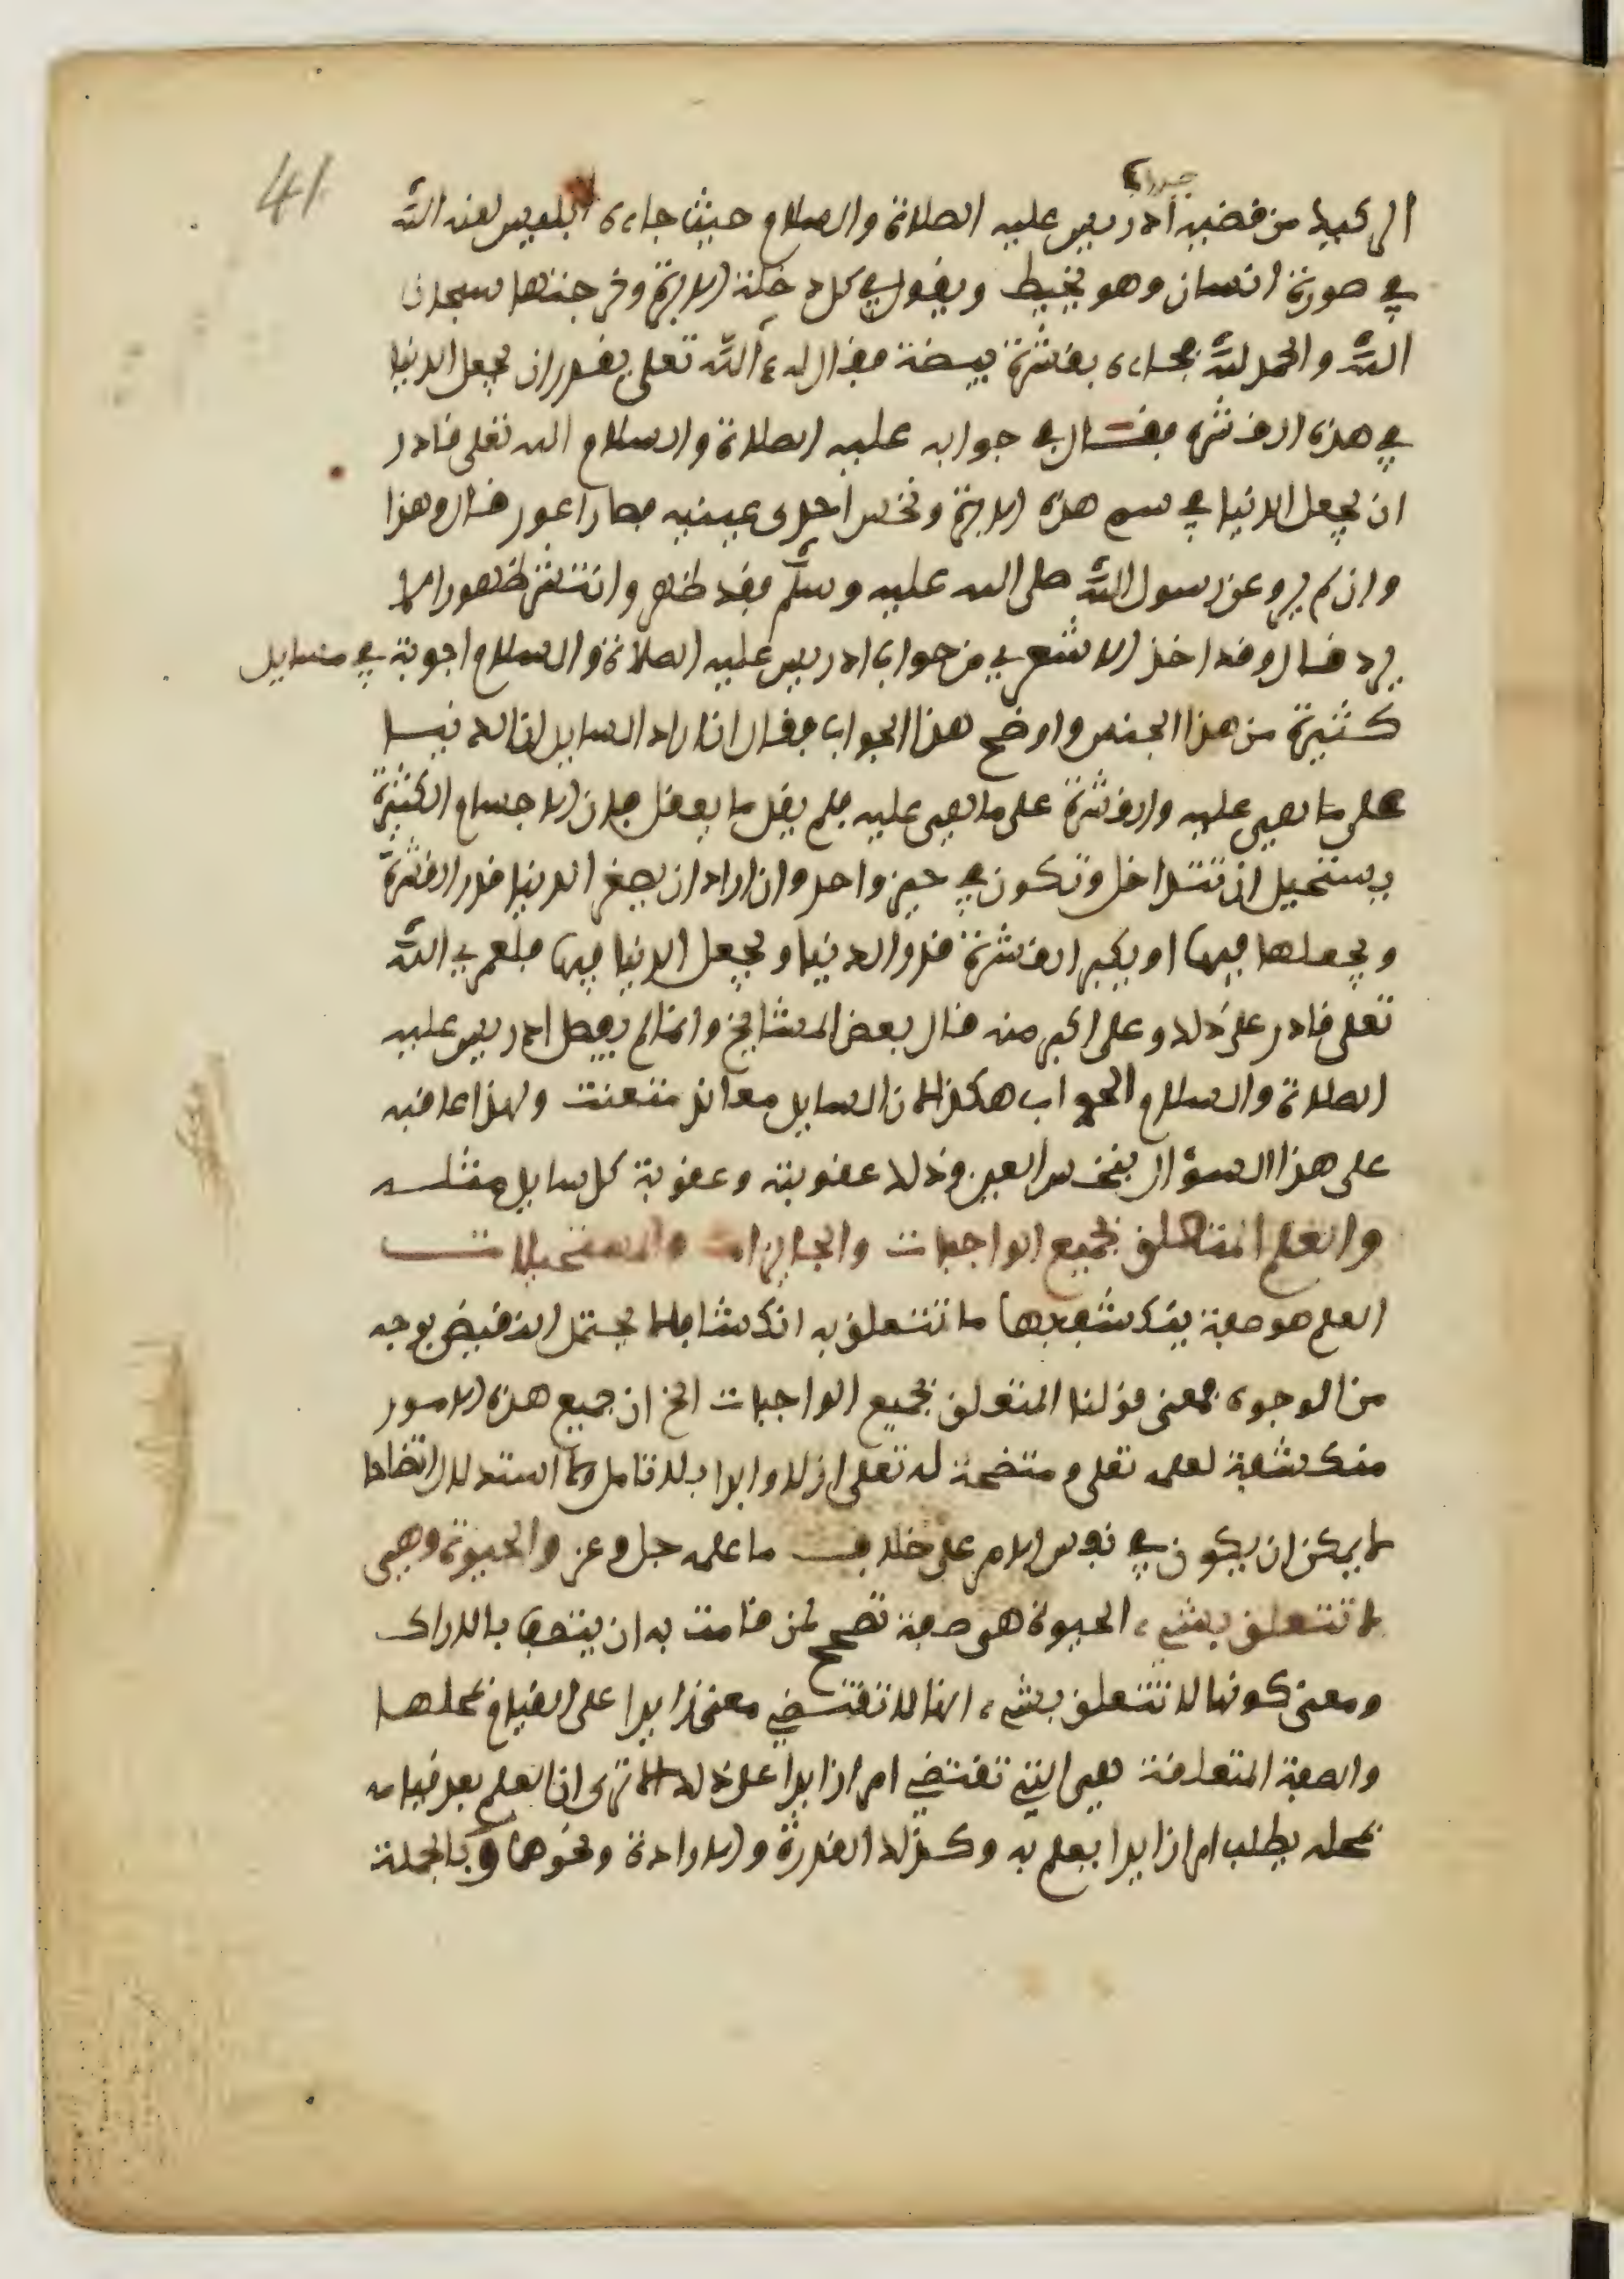 41
جواب
الركيك من قضية ادريس عليه الصلاة والسلام حيث جاءه ابليس لعنه اللّه
في صورة انسان وهو يخيط ويقول في كل دخلة الابرة وخرجتها سبحان
اللّه والحمد للّه فجاءه بقشرة بيضة فقال له ءاللّه تعلى يقدر ان يجعل الدنيا
في هذه القشرة فقال في جوابه عليه الصلاة والسلام الله تعلى قادر
ان يجعل الدنيا في سم هذه الابرة ونخس احدى عينيه فصار اعور قال وهذا
وان لم يرو عن رسول اللّه صلى الله عليه وسلّم فقد ظهر وانتشر ظهورا لا
يرد قال وقد اخذ الاشعري من جواب ادريس عليه الصلاة والسلام اجوبة في مسايل
كثيرة من هذا الجنس واوضح هذا الجواب فقال ان اراد السايل ان الدنيا
على ما هي عليه والقشرة على ما هي عليه فلم يقل ما يعقل فان الاجسام الكثيرة
يستحيل ان تتداخل وتكون في حيز واحد وان اراد ان يصغر الدنيا قدر القشرة
ويجعلها فيها او يكبر القشرة قدر الدنيا ويجعل الدنيا فيها فلعمري اللّه
تعلى قادر على ذلك وعلى اكبر منه قال بعض المشايخ وانما لم يفصل ادريس عليه
الصلاة والسلام الجواب هكذا لان السايل معاند متعنت ولهذا عاقبه
على هذا السؤال بنخس العين وذلك عقوبته وعقوبة كل سايل مثله
والعلم المتعلق بجميع الواجبات والجايزات والمستحيلات
العلم هو صفة ينكشف بها ما تتعلق به انكشافا لا يحتمل النقيض بوجه
من الوجوه فمعنى قولنا المتعلق بجميع الواجبات الخ ان جميع هذه الامور
منكشفة لعلمه تعلى ومتضحة له تعلى ازلا وابدا بلا تامل ولا استدلال اتضاحا
لا يمكن ان يكون في نفس الامر على خلاف ما علمه جل وعز والحيوة وهي
لا تتعلق بشيء الحيوة هي صفة تصحح لمن قامت به ان يتصف بالادراك
ومعنى كونها لا تتعلق بشيء انها لا تقتضي معنى زايدا على القيام بمحلها
والصفة المتعلقة هي التي تقتضي امرا زايدا على ذلك الا ترى ان العلم بعد قيامه
بمحله يطلب امرا زايدا يعلم به وكذلك القدرة والارادة ونحوهما وبالجملة